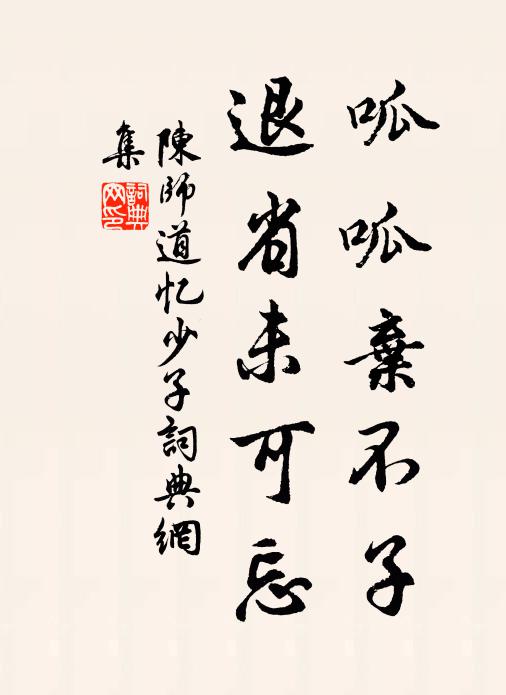 呱呱棄不子
退省未可忘
陳師道忆少子詞典網
集
詞典网印